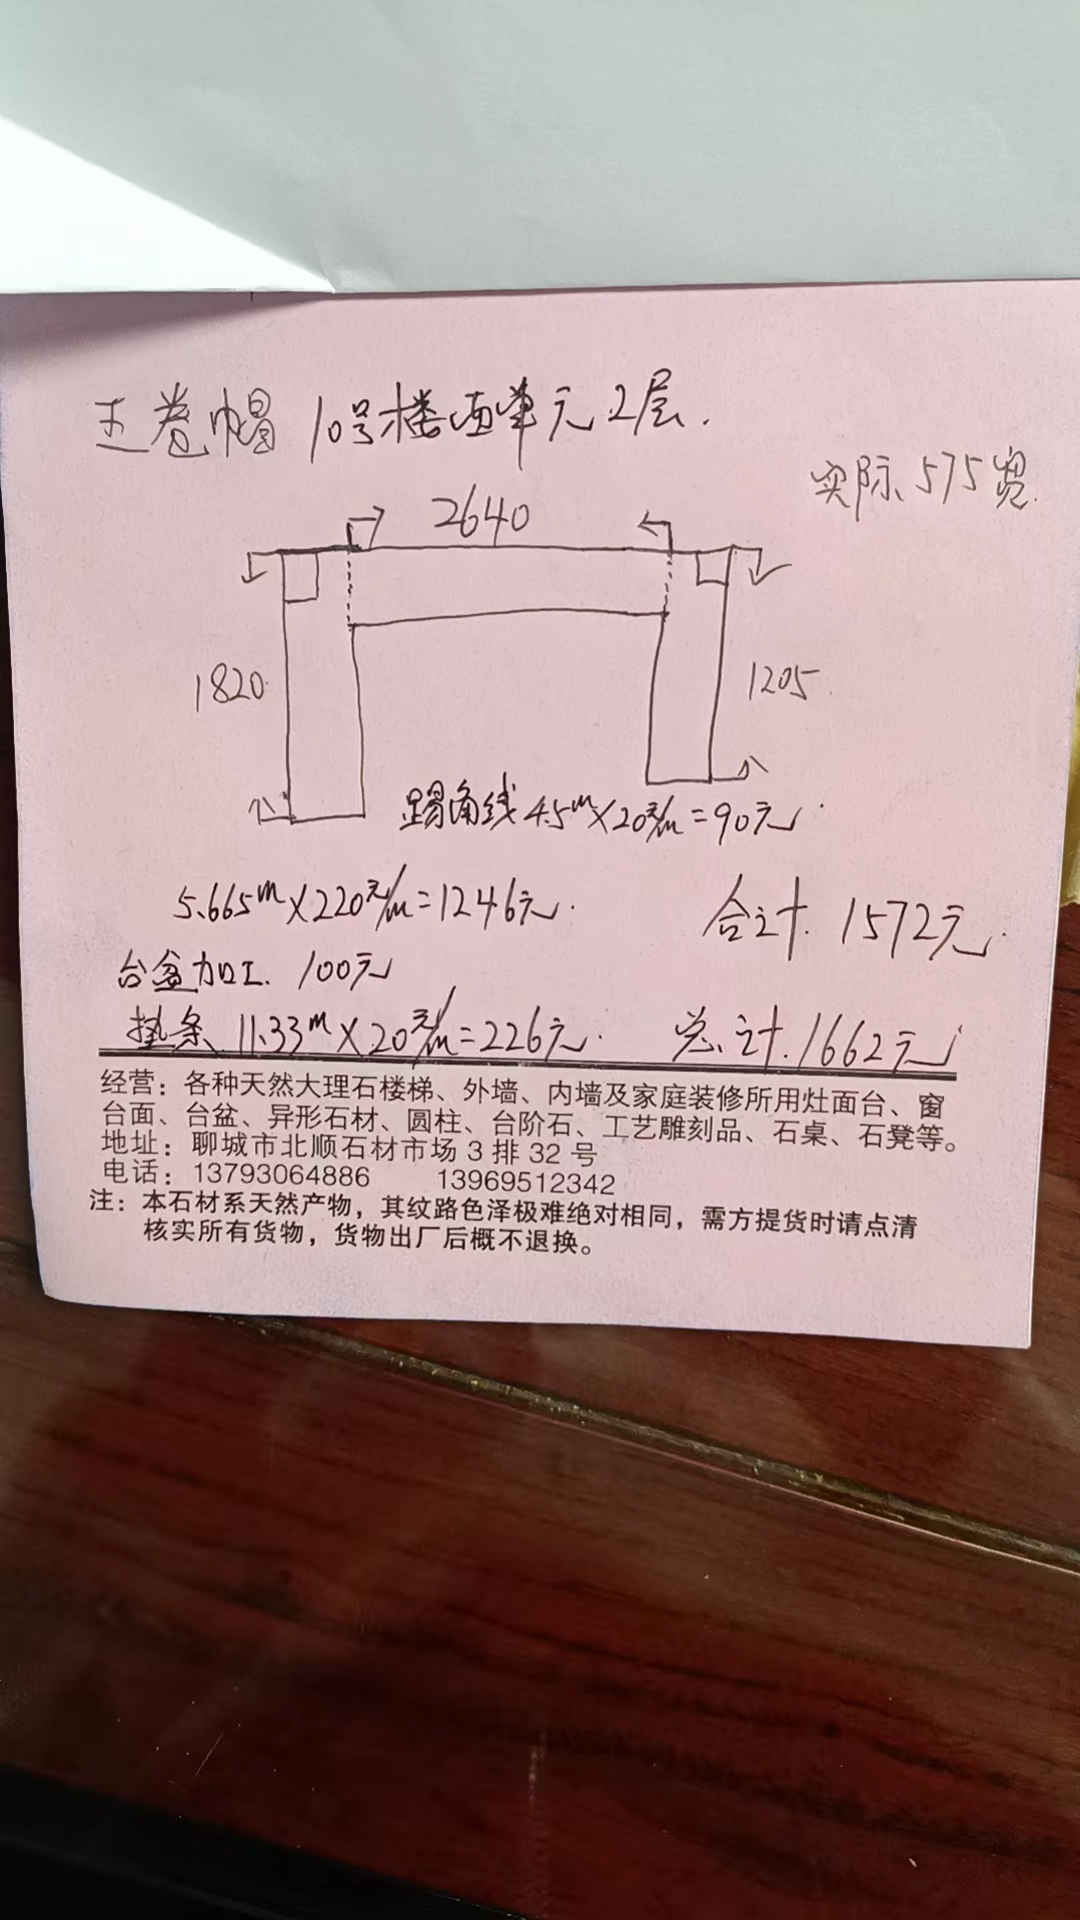 王卷帽 10号楼西单元2层.
实际575宽.
2640
1820
1205
踢角线 4.5m×20元/m=90元
5.665m×220元/m=1246元.
合计. 1572元.
台盆加工. 100元
垫条 11.33m×20元/m=226元.
总计.1662元
经营：各种天然大理石楼梯、外墙、内墙及家庭装修所用灶面台、窗
台面、台盆、异形石材、圆柱、台阶石、工艺雕刻品、石桌、石凳等。
地址：聊城市北顺石材市场3排32号
电话：13793064886 13969512342
注：本石材系天然产物，其纹路色泽极难绝对相同，需方提货时请点清
核实所有货物，货物出厂后概不退换。